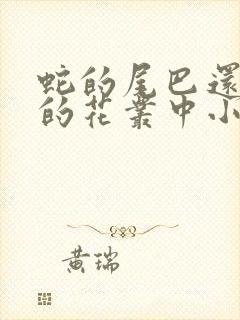 蛇的尾巴還
的花叢中小
黃瑞